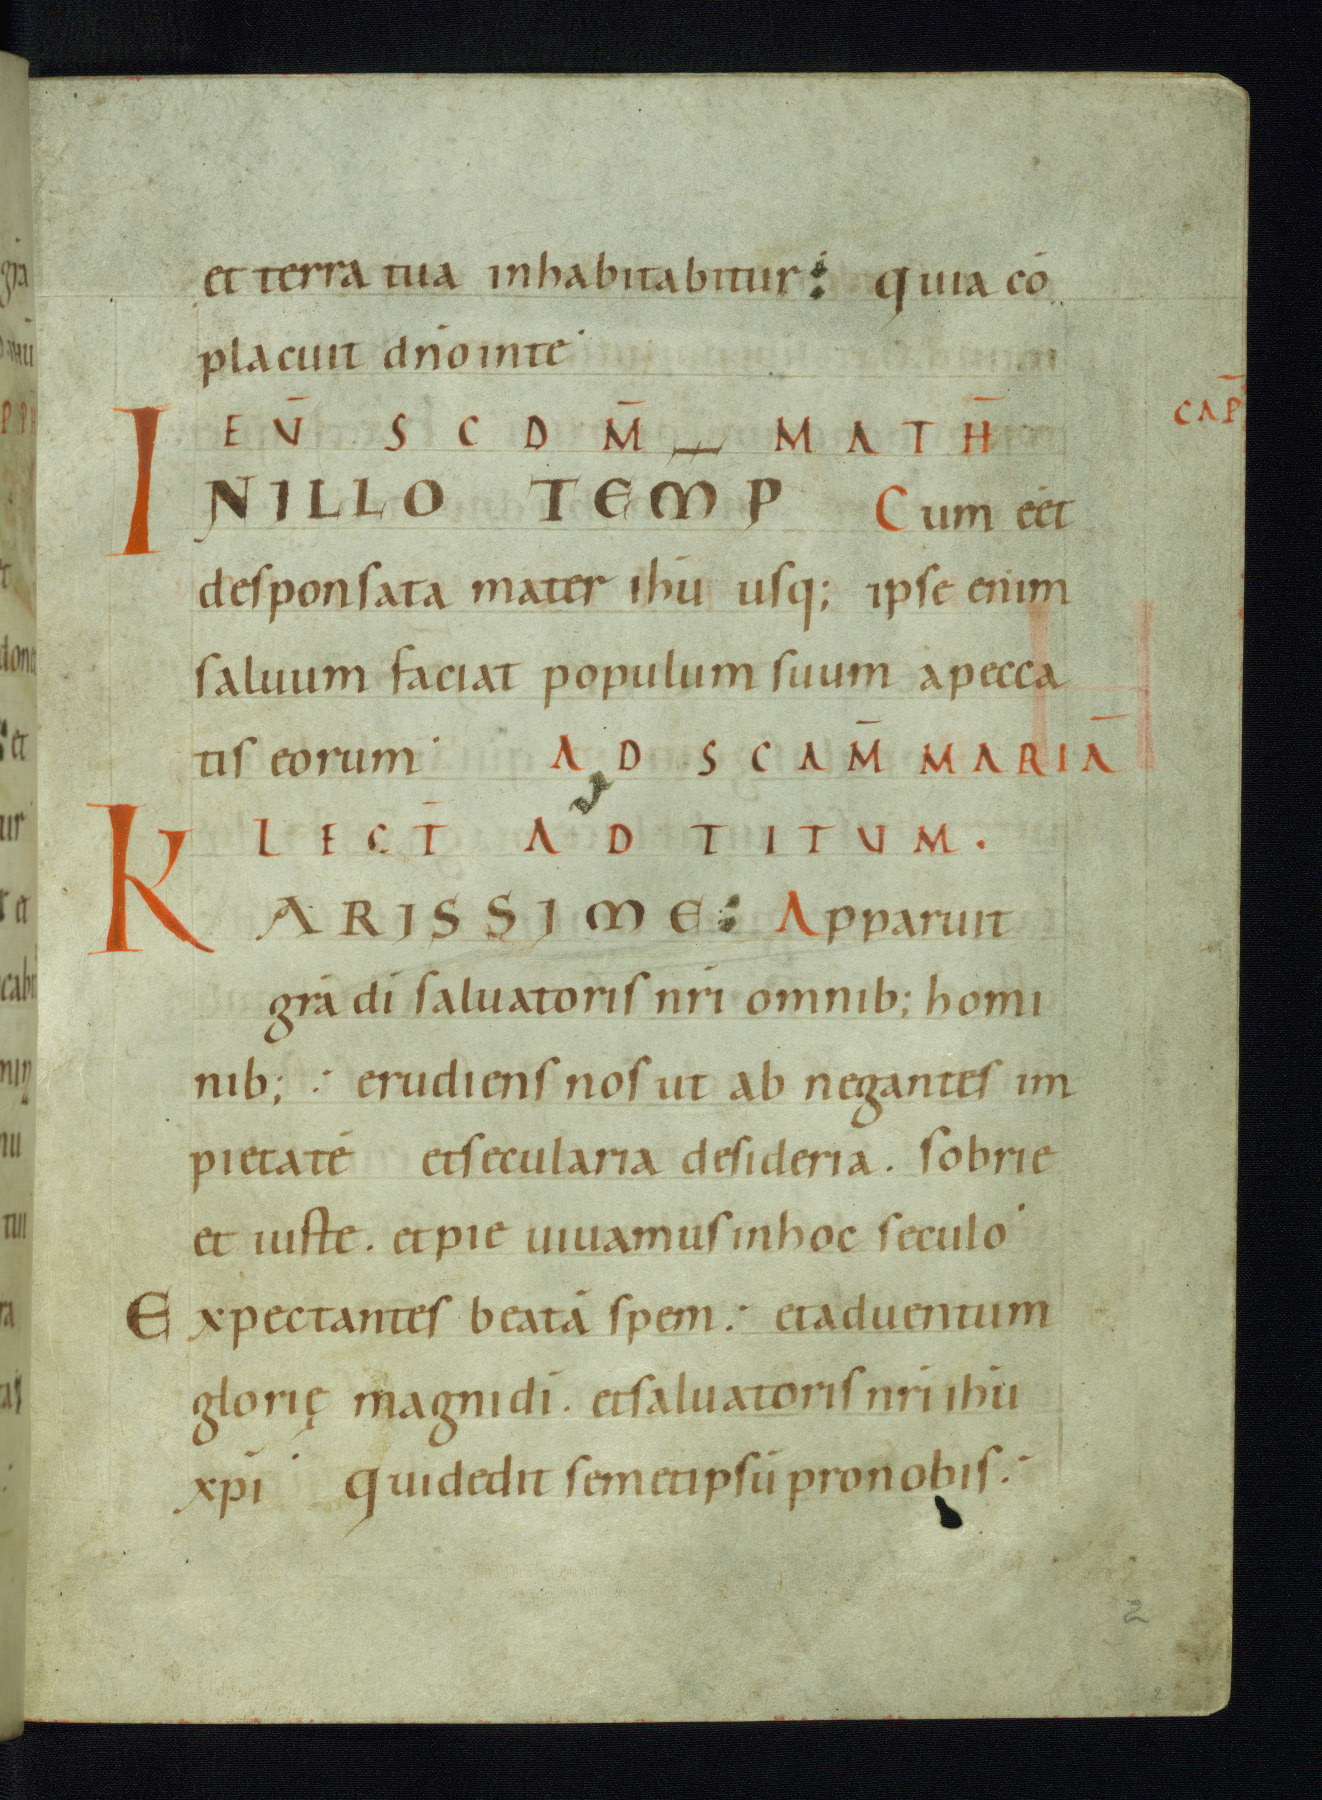 et terra tua inhabitabitur: quia cō
placuit dn̄o inte
EV̄ SCDM̄ MATH̄
CAP̄
INILLO TEMP Cum eēt
desponsata mater ihū usq; ipse enim
saluum faciat populum suum apecca
tis eorum AD SCAM̄ MARIĀ
LECT̄ AD TITUM.
KARISSIME: Apparuit
grā dī saluatoris nrī omnib; homi
nib; erudiens nos ut abnegantes im
pietatē et secularia desideria. sobrie
et iuste. et pie uiuamus in hoc seculo
Expectantes beatā spem. et aduentum
glorię magni dī. et saluatoris nrī ihū
xpī qui dedit semetipsū pro nobis.
2